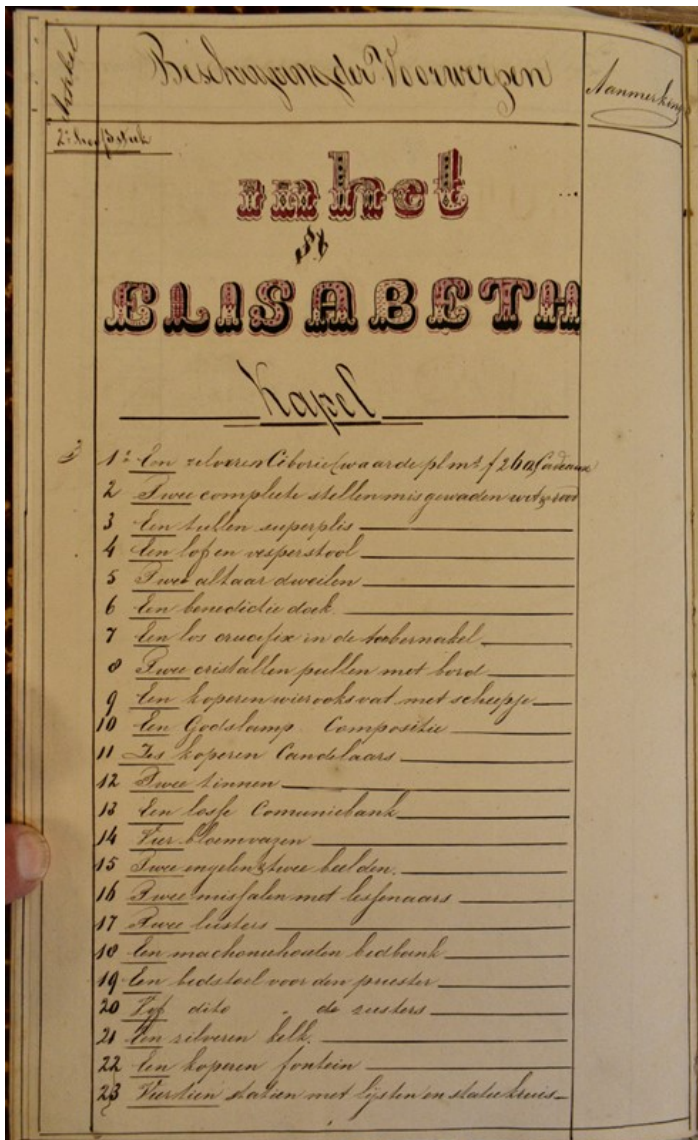 Artikel
Beschrijving der Voorwerpen
Aanmerking
2e hoofdstuk
in het
St
ELISABETH
Kapel
1e Een zilveren Ciborie (waarde pl mr f 260, Cadeaux
2 Twee compleete stellen misgewaden wit & rood
3 Een tullen superplis
4 Een lof en vesperstool
5 Twee altaar dweilen
6 Een benedictie doek.
7 Een los crucefix in de tabernakel
8 Twee cristallen pullen met bord
9 Een koperen wierooksvat met scheepje
10 Een Godslamp Compositie
11 Zes koperen Candelaars
12 Twee tinnen
13 Een losse Comuniebank
14 Vier bloemvazen
15 Twee engelen & twee beelden.
16 Twee missalen met lessenaars
17 Twee lusters
18 Een machoniehouten bedbank
19 Een bedstoel voor den priester
20 Vijf dito " de zusters
21 Een zilveren kelk.
22 Een koperen fontein
23 Viertien statien met lijsten en statiekruis